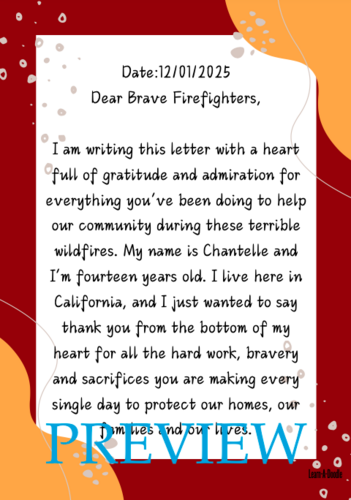 Date:12/01/2025
Dear Brave Firefighters,
I am writing this letter with a heart
full of gratitude and admiration for
everything you've been doing to help
our community during these terrible
wildfires. My name is Chantelle and
I'm fourteen years old. I live here in
California, and I just wanted to say
thank you from the bottom of my
heart for all the hard work, bravery
and sacrifices you are making every
single day to protect our homes, our
families and our lives.
PREVIEW